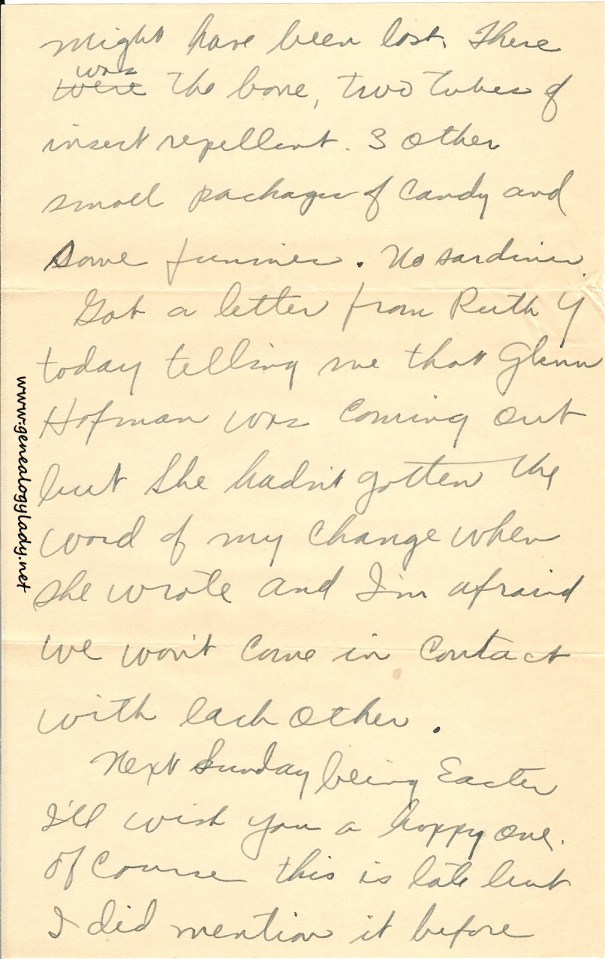 might have been lost. There
was
were the bone, two tubes of
insect repellent. 3 other
small packages of candy and
some funnies. No sardines.
Got a letter from Ruth Y
today telling me that Glenn
Hofman was coming out
but she hadn't gotten the
word of my change when
she wrote and I'm afraid
we won't come in contact
with each other.
Next Sunday being Easter
I'll wish you a happy one.
Of course this is late but
I did mention it before
www.genealogylady.net